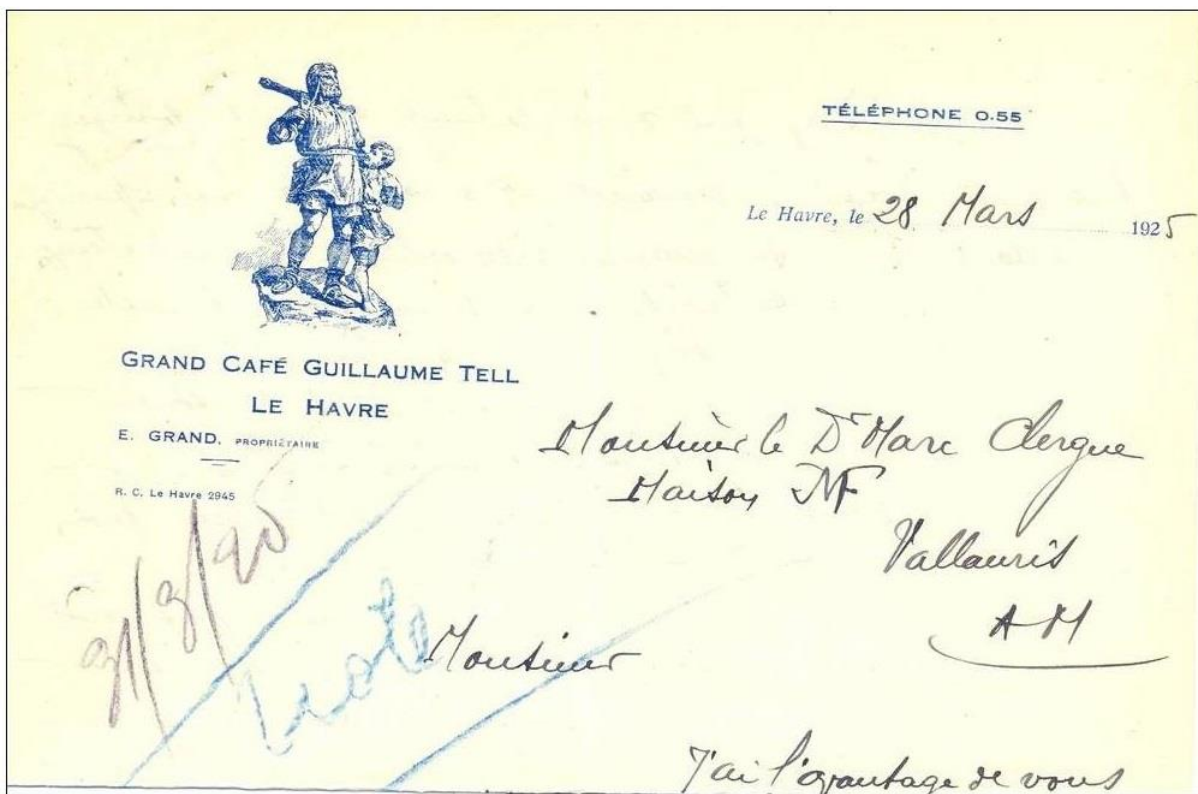 TÉLÉPHONE 0.55
Le Havre, le 28 Mars 1925
GRAND CAFÉ GUILLAUME TELL
LE HAVRE
E. GRAND, PROPRIÉTAIRE
R. C. Le Havre 2945
Monsieur le Dr Marc Clergue
Maison
Vallauris
A M
31/3/25
Monsieur
J'ai l'avantage de vous